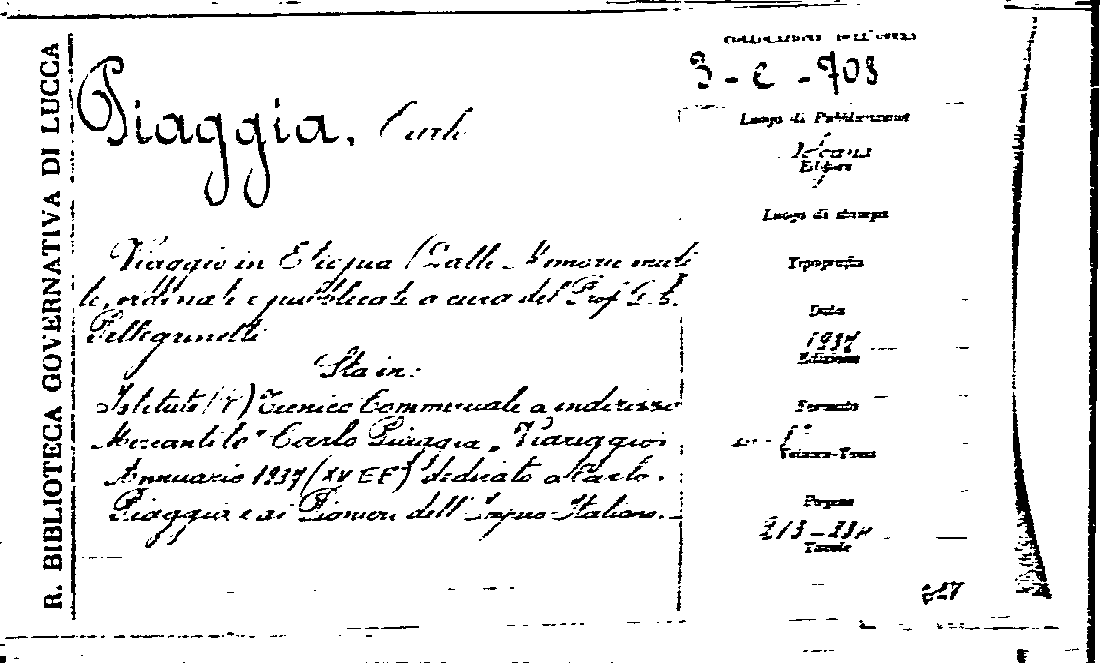 R. BIBLIOTECA GOVERNATIVA DI LUCCA
COLLOCAZIONE DELL'OPERA
3 - C - 703
Piaggia, Carlo
Luogo di Pubblicazione
Editore
Luogo di stampa
Viaggio in Etiopia (Dalle Memorie inedi
te, ordinate e pubblicate a cura del Prof. G. B.
Pellegrinetti
Tipografia
Data
1937
Edizione
Sta in:
Istituto (R) Tecnico Commerciale a indirizzo
Mercantile "Carlo Piaggia" Viareggio.
Annuario 1937 (XV EF) dedicato a Carlo
Piaggia e ai Pionieri dell'Impero Italiano.
Formato
in-8°
Pagine
Tavole